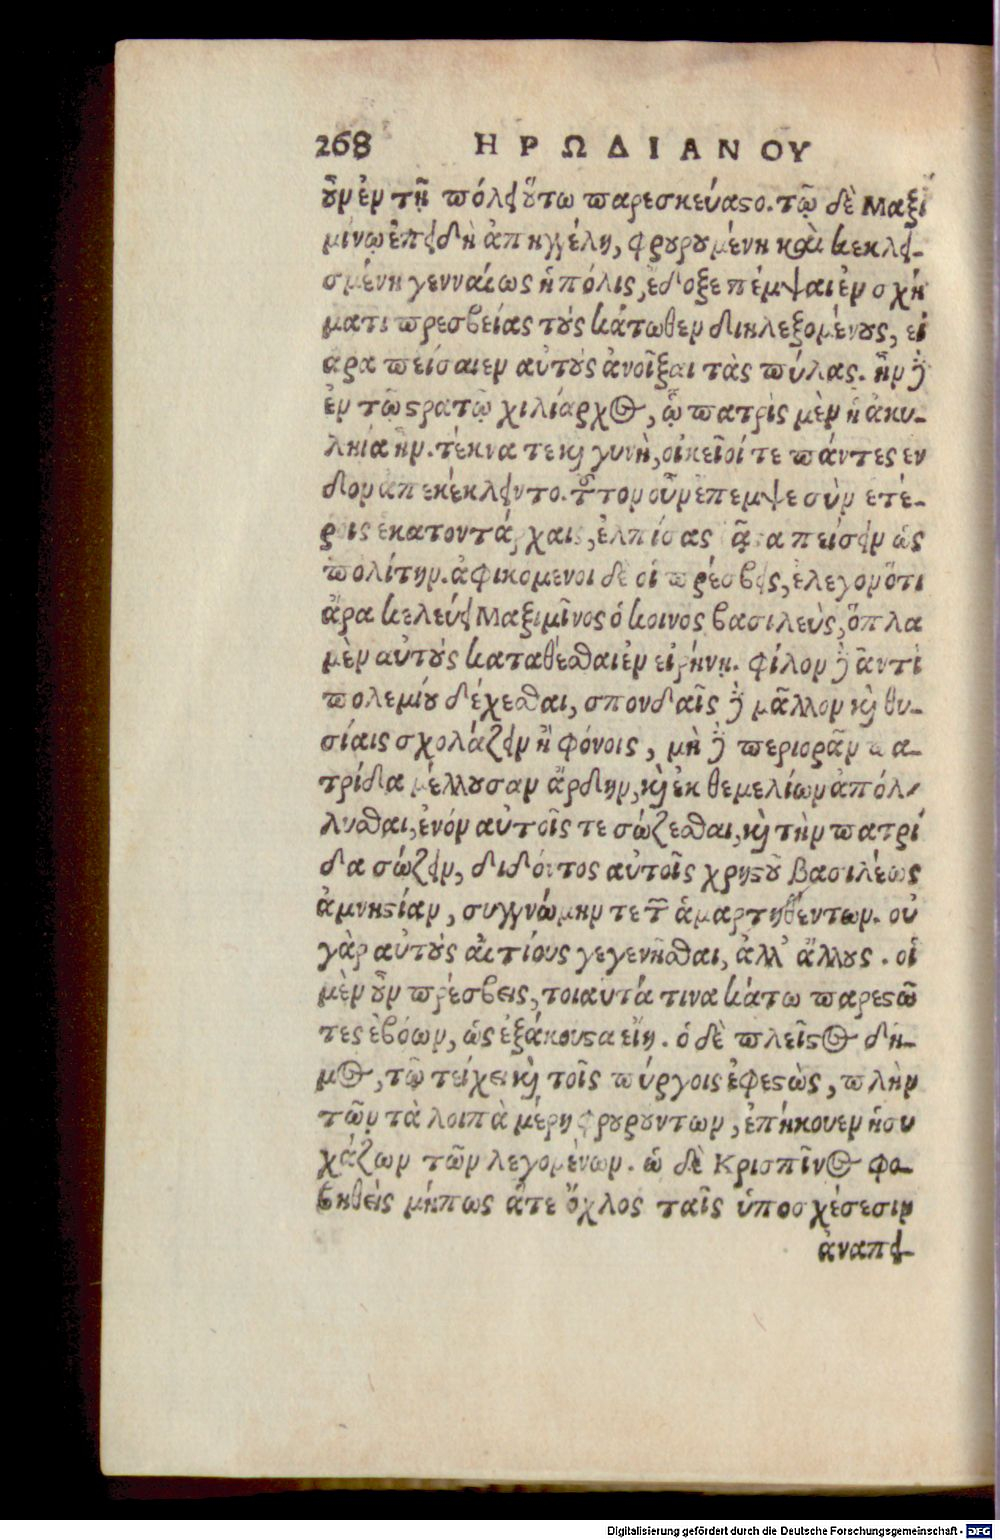 268 ΗΡΩΔΙΑΝΟΥ
οὖν ἐν τῇ πόλει οὕτω παρεσκεύαστο. τῷ δὲ Μαξι
μίνῳ ἐπειδὴ ἀπηγγέλη, φρουρουμένη καὶ κεκλει-
σμένη γενναίως ἡ πόλις, ἔδοξε πέμψαι ἐν σχή
ματι πρεσβείας τοὺς κάτωθεν διηλεξομένους, εἰ
αρα πείσαιεν αὐτοὺς ἀνοῖξαι τὰς πύλας. ἦν δὲ
ἐν τῷ στρατῷ χιλίαρχος, ᾧ πατρὶς μὲν ἡ ἀκυ-
ληία ἦν. τέκνα τε καὶ γυνὴ, οἰκεῖοί τε πάντες εν
δον ἀπεκέκλειντο. τοῦτον οὖν ἔπεμψε σὺν ετέ-
ροις ἑκατοντάρχαις, ἐλπίσας ῥᾷστα πείσειν ὡς
πολίτην. ἀφικομενοι δὲ οἱ πρέσβεις, ἐλεγον ὅτι
ἄρα κελεύει Μαξιμῖνος ὁ κοινος βασιλεὺς, ὅπλα
μὲν αὐτοὺς καταθέσθαι ἐν εἰρήνῃ. φίλον δὲ ἀντὶ
πολεμίου δέχεσθαι, σπονδαῖς δὲ μᾶλλον καὶ θυ-
σίαις σχολάζειν ἢ φόνοις, μὴ δὲ περιορᾶν πα-
τρίδα μέλλουσαν ἄρδην, καὶ ἐκ θεμελίων ἀπόλ-
λυσθαι, ἐνὸν αὐτοῖς τε σώζεσθαι, καὶ τὴν πατρί
δα σώζειν, διδόντος αὐτοῖς χρηστοῦ βασιλέως
ἀμνηστίαν, συγγνώμην τε τῶν ἁμαρτηθέντων. οὐ
γὰρ αὐτοὺς αἰτίους γεγενῆσθαι, ἀλλ' ἄλλους. οἱ
μὲν οὖν πρέσβεις, τοιαυτά τινα κάτω παρεστῶ
τες ἐβόων, ὡς ἐξάκουστα εἴη. ὁ δὲ πλεῖστος δῆ-
μος, τῷ τείχει καὶ τοῖς πύργοις ἐφεστὼς, πλὴν
τῶν τὰ λοιπὰ μέρη φρουρουντων, ἐπήκουεν ἡσυ
χάζων τῶν λεγομένων. ὡ δὲ Κρισπῖνος φο-
βηθεὶς μήπως ἅτε ὄχλος ταῖς ὑποσχέσεσιν
ἀναπει-
Digitalisierung gefördert durch die Deutsche Forschungsgemeinschaft - DFG